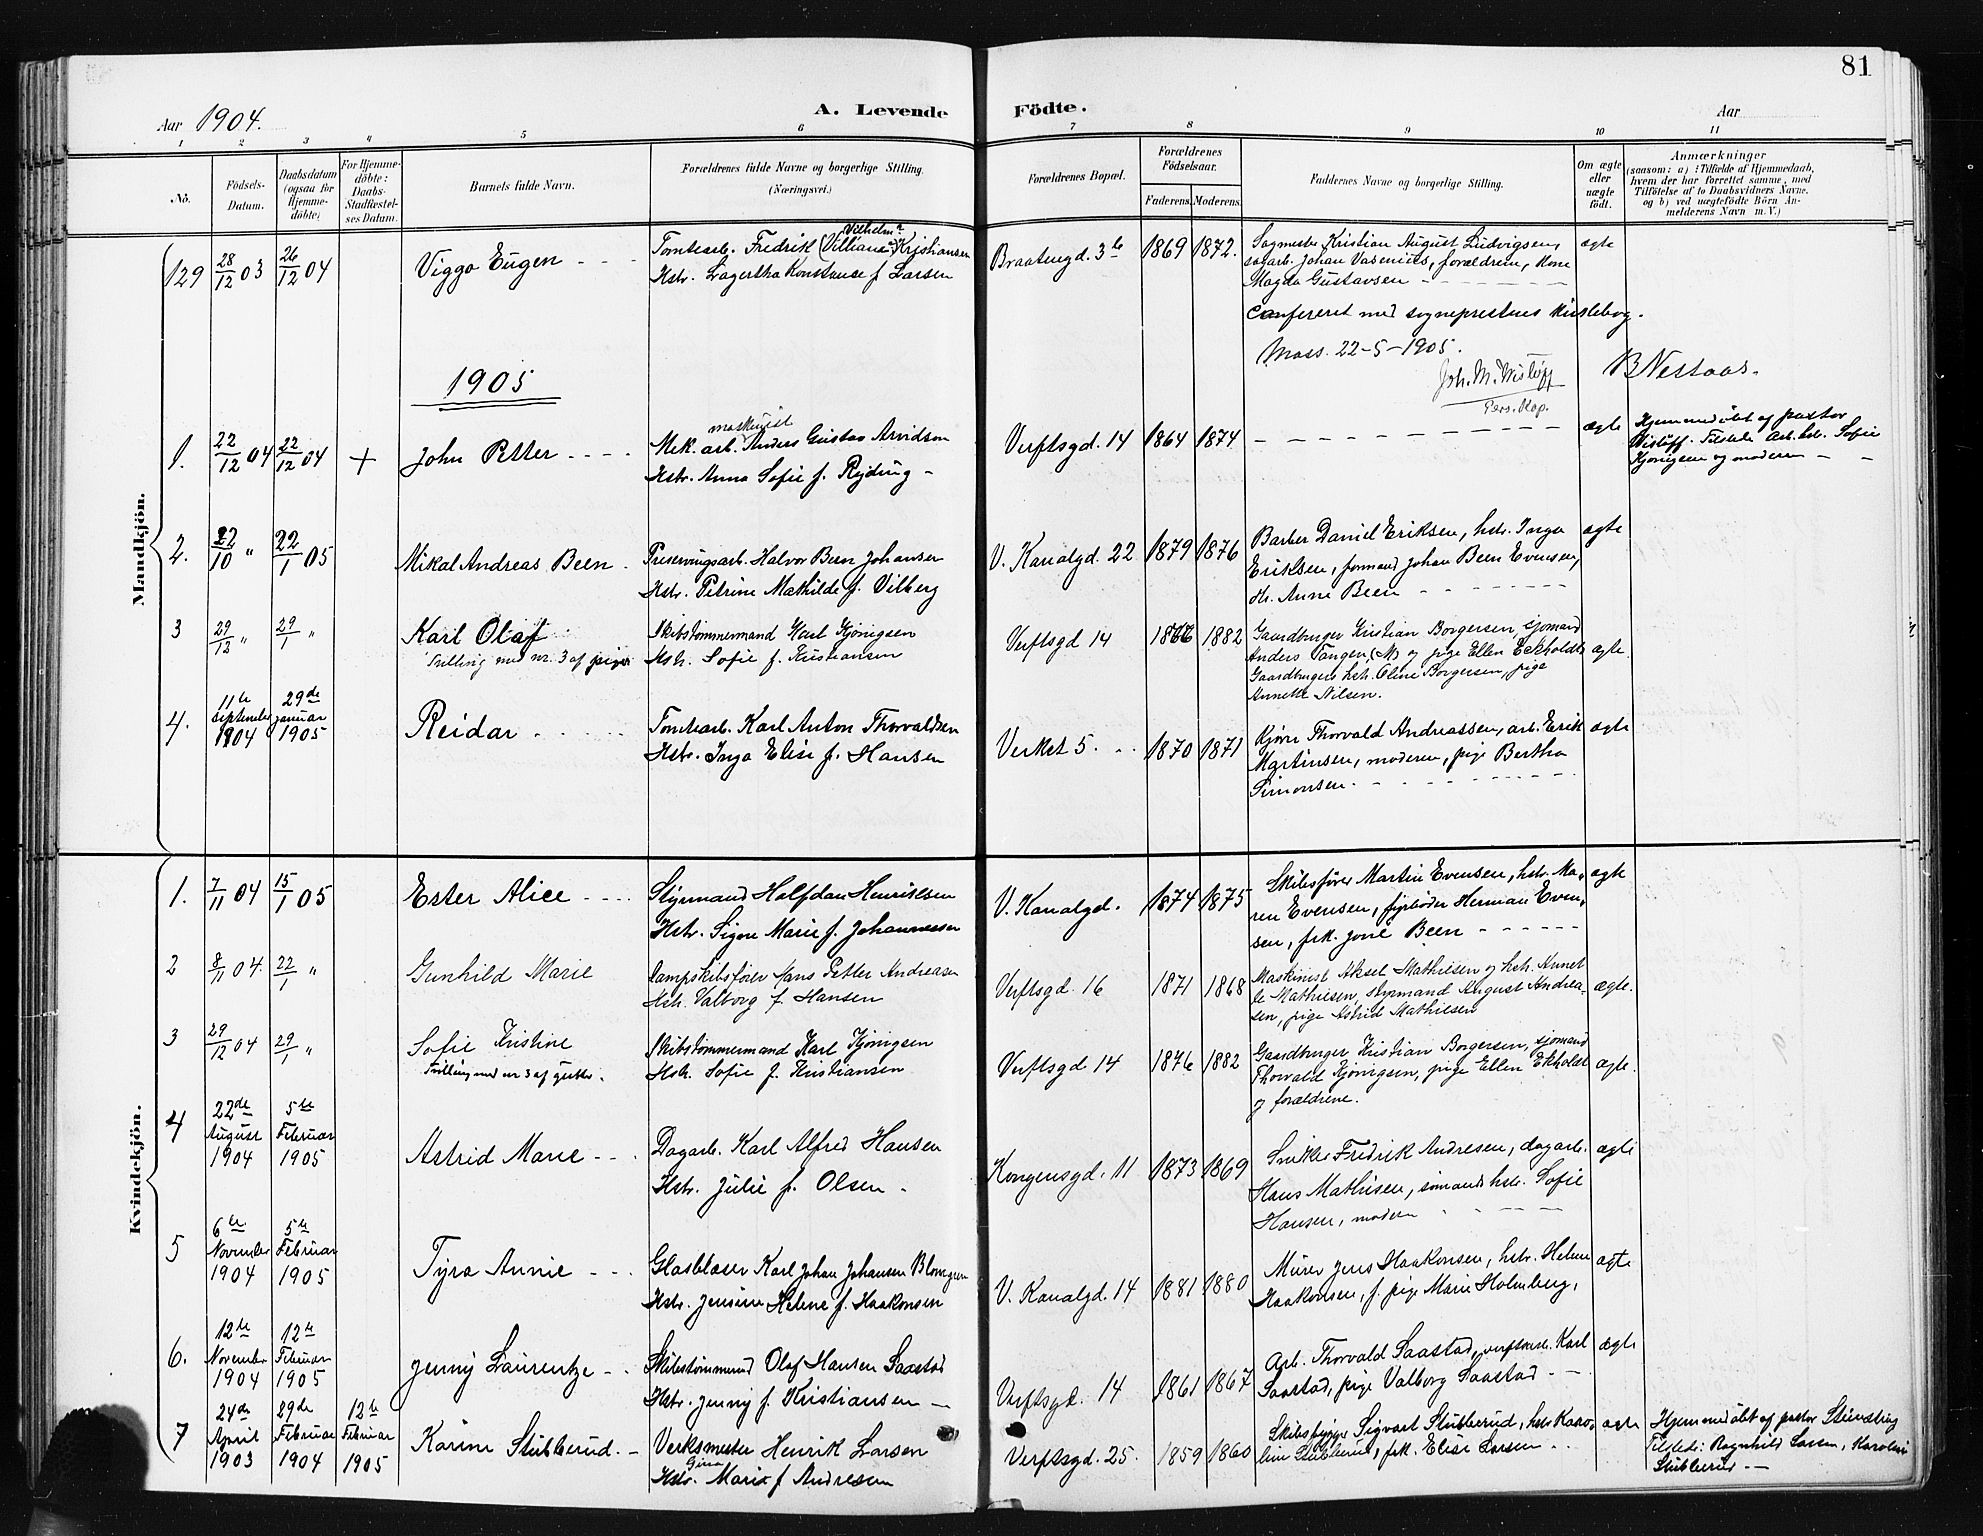 81
Aar 1904.
A. Levende Födte.
Aar
1 2 3 4 5 6 7 8 9 10 11
No.
Födsels-Datum.
Daabsdatum (ogsaa for Hjemme-döbte)
For Hjemme-döbte: Daabs-Stadfæstel-ses Datum.
Barnets fulde Navn.
Forældrenes fulde Navne og borgerlige Stilling. (Næringsvei.)
Forældrenes Bopæl.
Forældrenes Födselsaar.
Faderens. Moderens.
Faddernes Navne og borgerlige Stilling.
Om ægte eller uægte födt.
Anmærkninger
(saasom: a) i Tilfælde af Hjemmedaab,
hvem der har forrettet samme, med
Tilföielse af to Daabsvidners Navne,
og b) ved uægtefödte Börn An-
melderens Navn m. V.)
Mandkjön.
129 28/12 03 26/12 04 Viggo Eugen
Vilhelm
Tomtearb. Fredrik (Villiam) Kristiansen
Hstr. Lagertha Konstanse f. Larsen
Braatengd. 3b 1869 1872.
Sagmester Kristian August Ludvigsen,
sagarb. Johan Vasenius, forældrene, Kone
Magda Gustavsen
ægte
Confereret med sogneprestens kirkebog.
Moss. 22-5-1905.
Joh. M. Wisløff
Pers. Kap.
B Nestaas.
1905
1. 22/12 04 22/12 04 + John Petter
maskinist
Mek. arb. Anders Gustav Arvidson
Hstr. Anna Sofie f. Ryding
Verftsgd. 14 1864 1874
ægte
Hjemmedøbt af pastor
Wisløff. Tilstede Arb. hstr. Sofie
Kjønigsen og moderen
2. 22/10 " 22/1 05 Mikal Andreas Been
Preservingsarb. Halvor Bern Johansen
Hstr. Petrine Mathilde f. Vilberg
V. Kanalgd. 22 1879 1876
Barber Daniel Eriksen, hstr. Inga
Eriksen, formand Johan Been Evensen,
Fr. Anne Been
ægte
3 29/12 " 29/1 " Karl Olaf
Tvilling med nr. 3 af piger
Skibstømmermand Karl Kjønigsen
Hstr. Sofie f. Kristiansen
Verftsgd 14 1876 1882
Gaardbruger Kristian Borgersen, sjømand
Anders Tangen, (N) og pige Ellen Eckholdt
Gaardbrugers hstr. Oline Borgersen, pige
Annette Nilsen.
ægte.
4. 11te september 1904 29de januar 1905 Reidar
Tomtearb. Karl Anton Thorvaldsen
Hstr. Inga Elise f. Hansen
Verket 5. 1870 1871
Kjører Thorvald Andreassen, arb. Erik
Martinsen, moderen, pige Bertha
Simonsen.
ægte
Kvindekjön.
1. 7/11 04 15/1 05 Ester Alice
Styrmand Halfdan Henriksen
Hstr. Signe Marie f. Johannessen
V. Kanalgd. 1874 1875
Skibsfører Martin Evensen, hstr. Ma-
ren Evensen, fyrbøder Herman Even-
sen, frk. Jone Been
ægte
2 8/11 04. 22/1 " Gunhild Marie
Dampskibsfører Hans Petter Andreasen
Hstr. Valborg f. Hansen
Verftsgd. 16 1871 1868
Maskinist Aksel Mathisen og hstr. Annet-
te Mathiesen, styrmand August Andrea-
sen, pige Astrid Mathiesen
ægte.
3 29/12 04 29/1 " Sofie Kristine
Tvilling med nr 3 af gutter.
Skibstømmermand Karl Kjønigsen
Hstr. Sofie f. Kristiansen
Verftsgd 14 1876 1882
Gaardbruger Kristian Borgersen, sjømand
Thorvald Kjønigsen, pige Ellen Ekholdt
og forældrene.
ægte.
4 22de August 1904 5te Februar 1905 Astrid Marie
Dagarb. Karl Alfred Hansen
Hstr. Julie f. Olsen.
Kongensgd. 11 1873 1869
Snikker Fredrik Andresen, dagarb.
Hans Mathisen, sømands hstr. Sofie
Hansen, moderen
ægte
5 6te November 1904 5te Februar 1905 Tyra Annie
Glasblaser Karl Johan Johansen Blomgren
Hstr. Jensine Helene f. Haakonsen
V. Kanalgd. 14 1881 1880
Murer Jens Haakonsen, hstr. Helene
Haakonsen, f. pige Marie Holmberg,
ægte
6. 12te November 1904 12te Februar 1905 Jenny Laurentze
Skibstømmermd Olaf Hansen Saastad
Hstr. Jenny f. Kristiansen
Verftsgd. 14 1861 1867
Arb. Thorvald Saastad, verftsarb. Karl
Saastad, pige Valborg Saastad
ægte
7 24de April 1903 29de Februar 1904 12te Februar 1905 Karine Stubberud.
Verksmester Henrik Larsen
Gina
Hstr. Marie f. Andresen
Verftsgd. 25. 1859 1860
Skibsbygger Sigvart Stubberud, hstr. Karo-
line Stubberud, frk. Elise Larsen
ægte
Hjemmedøbt af pastor Stenersting
Tilstede: Ragnhild Larsen, Karoline
Stubberud